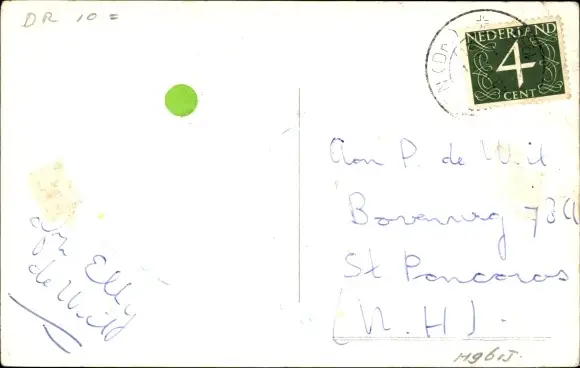 DR 10 =
NEDERLAND
4
CENT
Aan P. de Wit
Bovenweg 73A
St Pancras
(N.H).
Elly
de Wit